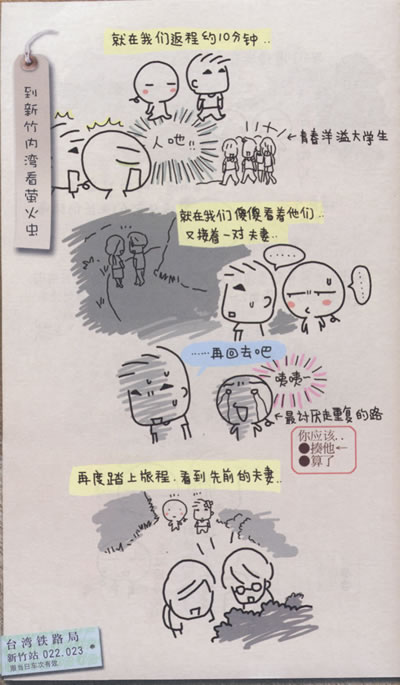 就在我们返程约10分钟..
到新竹内湾看萤火虫
人吔!!
←青春洋溢大学生
就在我们傻傻看着他们..
又接着一对夫妻..
......
......
......再回去吧
咦咦一
←最讨厌走重复的路
你应该..
●揍他←
●算了
再度踏上旅程.看到先前的夫妻..
台湾铁路局
新竹站 022.023
限当日车次有效